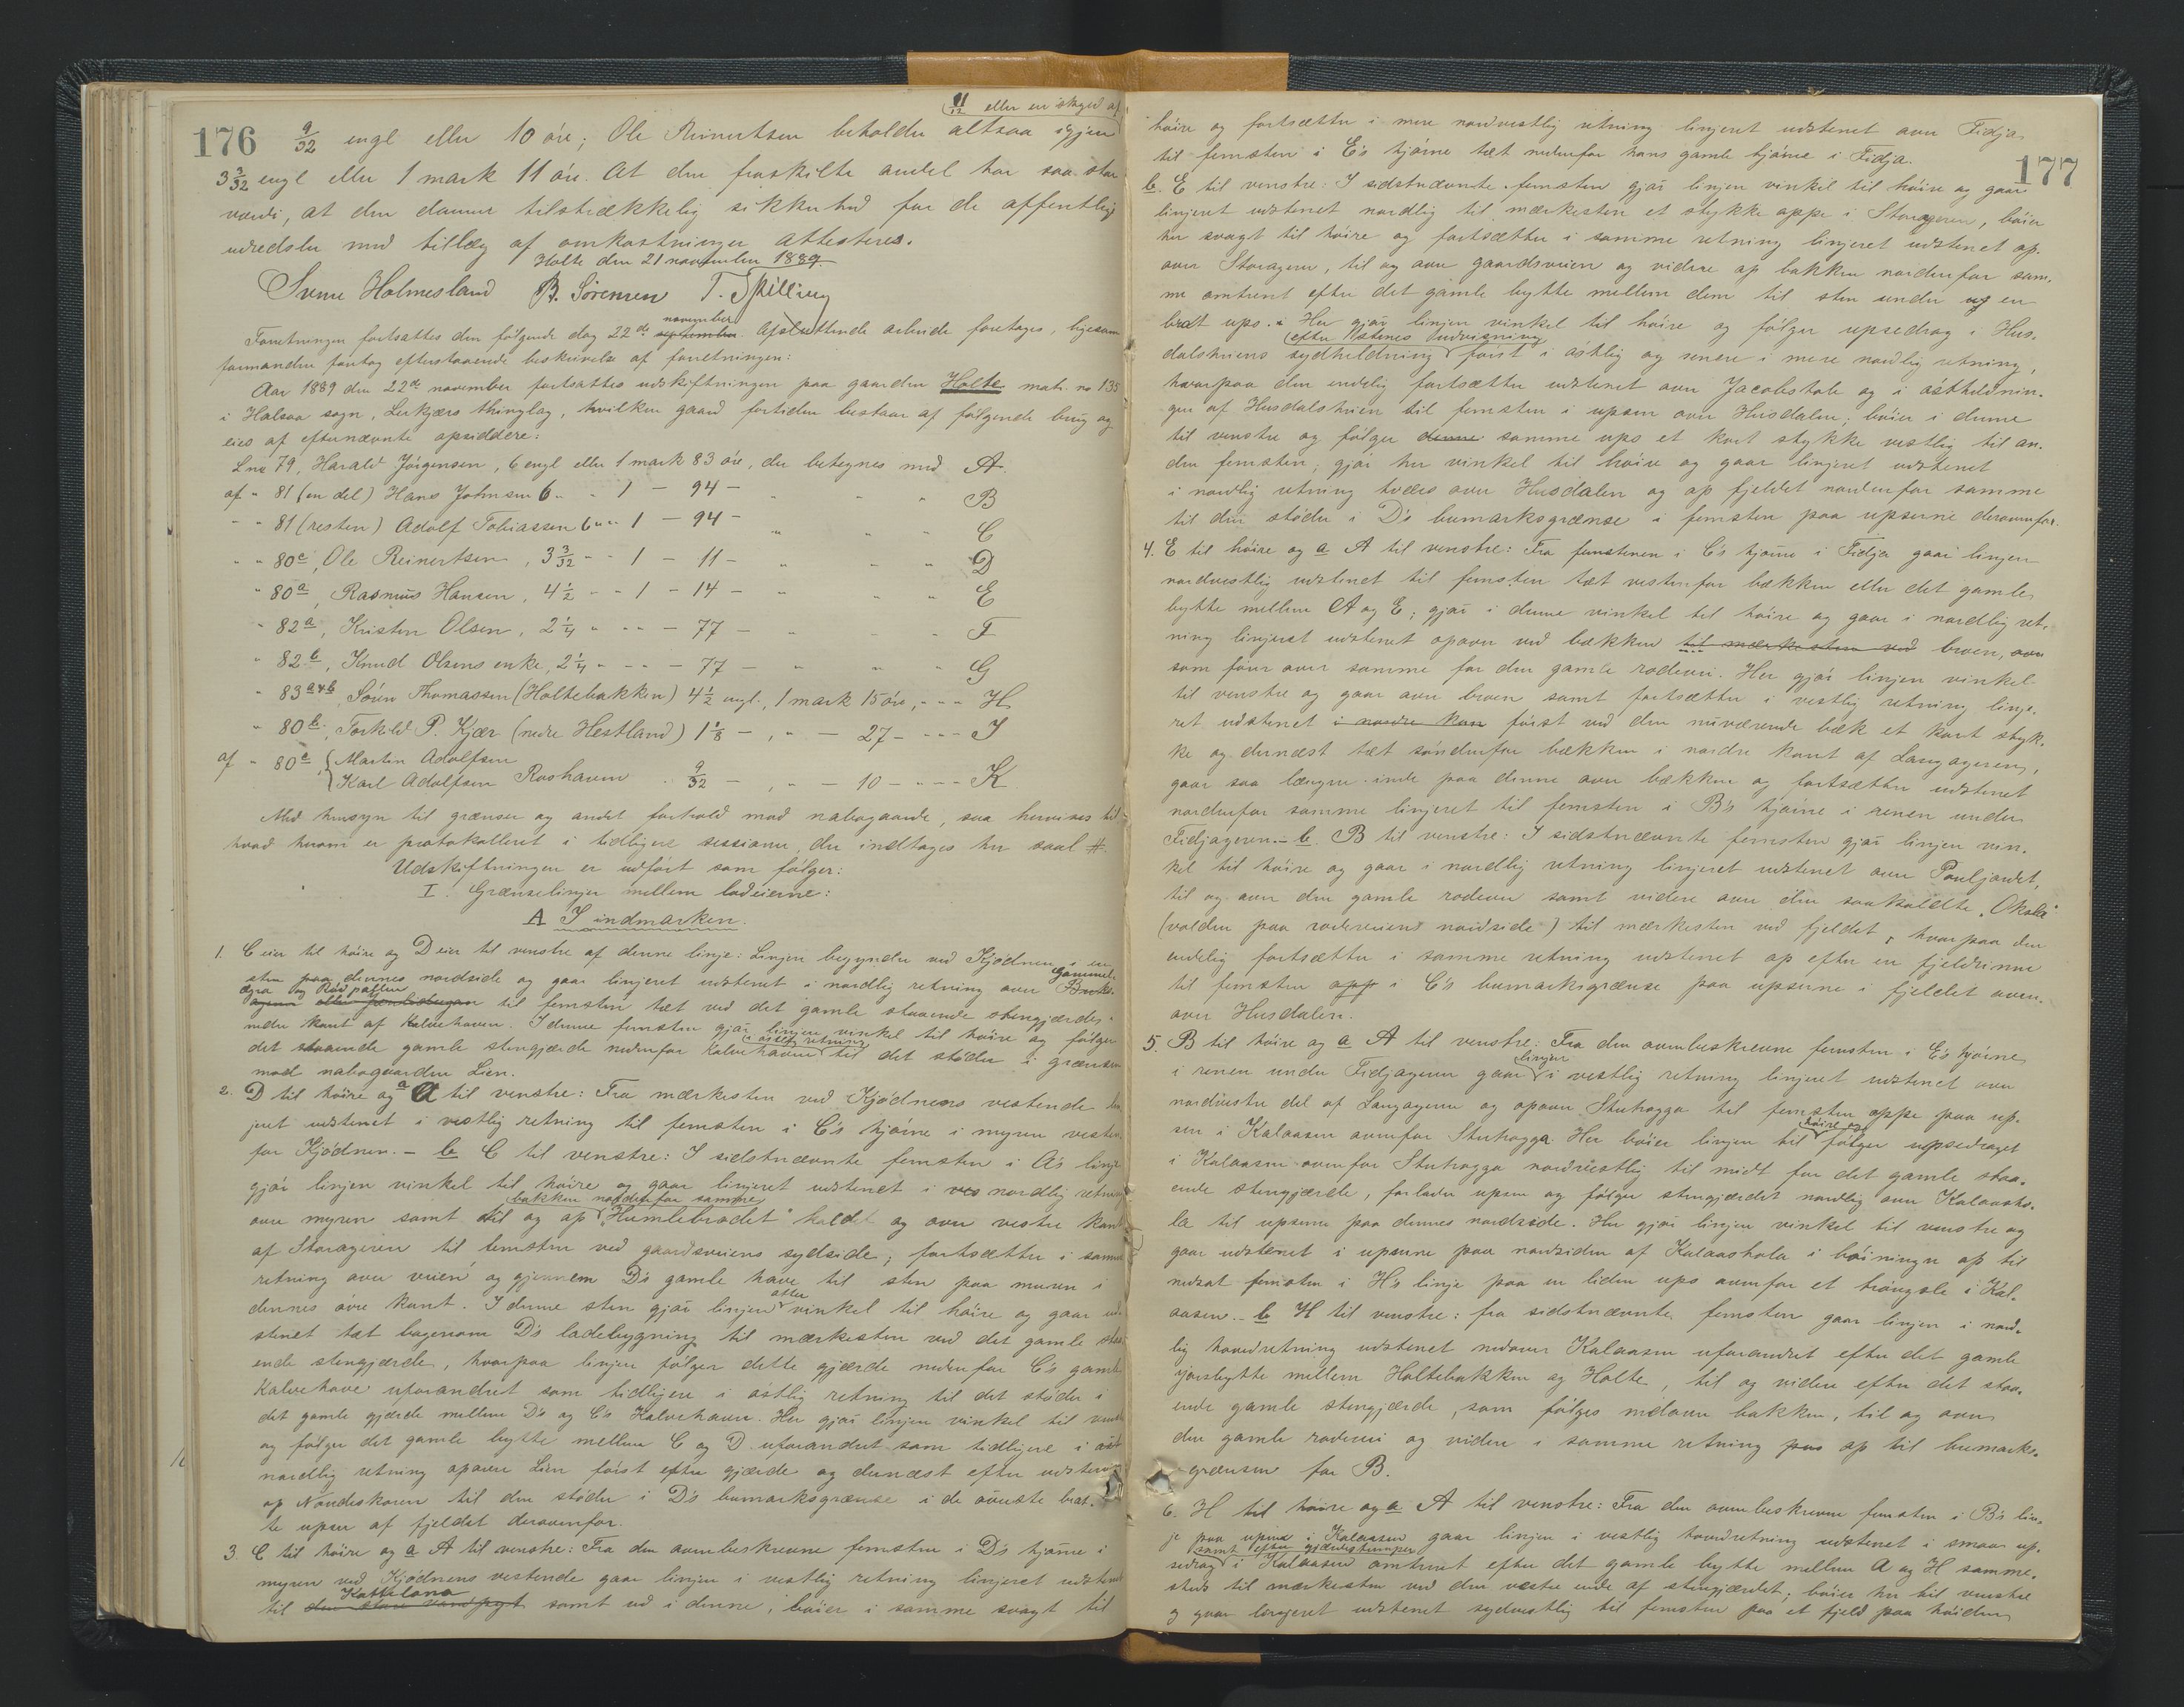 176
11/12 eller en skyld af
9/32 engl eller 10 öre; Ole Reinertsen beholder altsaa igjen
3 3/32 engl eller 1 mark 11 öre. At den fraskilte andel har saa stor
værdi, at den danner tilstrækkelig sikkerhed for de offentlige
udredsler med tillæg af omkostninger attesteres.
Holte den 21 november 1889.
Svenn Holmesland B. Sörensen T. Spilling
november
Forretningen fortsattes den fölgende dag 22de september. Afsluttende arbeide foretoges, ligesom
formanden foretog efterstaaende beskrivelse af forretningen:
Aar 1889 den 22de november fortsattes udskiftningen paa gaarden Holte matr. no 135
i Halsaa sogn, Lerkjærs thinglag, hvilken gaard fortiden bestaar af fölgende brug og
eies af efternævnte opsiddere:
Lno 79, Harald Jörgensen, 6 engl eller 1 mark 83 öre, der betegnes med A.
af " 81 (en del) Hans Johnsen 6 " " 1 — 94 — " " " B
" " 81 (resten) Adolf Tobiassen 6 " " 1 — 94 — " " " C
" " 80c, Ole Reinertsen, 3 3/32 " " 1 — 11 — " " " D
" 80a, Rasmus Hansen, 4 1/2 " " 1 — 14 — " " " E
" 82a, Kristen Olsen, 2 1/4 " " " — 77 — " " " F
" 82b, Knud Olsens enke, 2 1/4 " " " — 77 — " " " G
" 83a+b, Sören Thomassen (Holtebakken) 4 1/2 engl., 1 mark 15 öre, " " " H
" 80b, Torkild P. Kjær (nedre Hestland) 1 1/8 — , " — 27 — " " " I
af " 80c, { Martin Adolfsen
Karl Adolfsen Roshaven " 9/32 — , " — 10 — " " " K
Med hensyn til grænser og andet forhold mod nabogaarde, saa henvises til
hvad herom er protokolleret i tidligere sessioner, der indtages her saal #.
Udskiftningen er udfört som fölger:
I. Grænselinjer mellem lodeierne:
A I indmarken.
1. C eier til höire og D eier til venstre af denne linje: Linjen begynder ved Kjödnen i en
sten paa dennes nordside og gaar linjeret udstenet i nordlig retning over Gammel
ageren til femsten tæt ved det gamle staaende stengjærdes
nedre kant af Kalvehaven. I denne femsten gjör linjen vinkel til höire og fölger
i östlig retning
det staaende gamle stengjærde nedenfor Kalvehaven til det stöder i grænsen
mod nabogaarden Lien.
2. D til höire og a A til venstre: Fra mærkesten ved Kjödnens vestende lin-
jeret udstenet i vestlig retning til femsten i C's hjörne i myren vesten-
for Kjödnen. — b C til venstre: I sidstnævnte femsten i A's linje
gjör linjen vinkel til höire og gaar linjeret udstenet i nordlig retning
bakken nordenfor samme
over myren samt til og op "Humlebrodet" kaldet og over vestre kant
af Storageren til femsten ved gaardsveiens sydside; fortsætter i samme
retning over veien og gjennem D's gamle have til sten paa muren i
atter
dennes övre kant. I denne sten gjör linjen vinkel til höire og gaar ud-
stenet tæt bagenom D's ladebygning til mærkesten ved det gamle staa-
ende stengjærde, hvorpaa linjen fölger dette gjærde nedenfor C's gamle
Kalvehave uforandret som tidligere i östlig retning til det stöder i
det gamle gjærde mellem D's og C's Kalvehaver. Her gjör linjen vinkel til venstre
og fölger det gamle bytte mellem C og D uforandret som tidligere i öst-
nordlig retning opover Lien först efter gjærde og dernæst efter udstening
op Nordiskaren til den stöder i D's bumarksgrænse i de överste brat-
te upser af fjeldet derovenfor.
3. C til höire og a A til venstre: Fra den ovenbeskrevne femsten i D's hjörne i
myren ved Kjödnens vestende gaar linjen i vestlig retning linjeret udstenet
Kattelona
til den store vandpyt samt ud i denne, böier i samme svagt til
177
höire og fortsætter i mere nordvestlig retning linjeret udstenet over Tidja
til femsten i E's hjörne tæt nedenfor hans gamle hjörne i Tidja.
b. E til venstre: I sidstnævnte femsten gjör linjen vinkel til höire og gaar
linjeret udstenet nordlig til mærkesten et stykke oppe i Storageren, böier
her svagt til höire og fortsætter i samme retning linjeret udstenet op
over Storageren, til og over gaardsveien og videre op bakken nordenfor sam-
me omtrent efter det gamle bytte mellem dem til sten under en
brat ups. Her gjör linjen vinkel til höire og fölger upsedrag i Hus-
efter stenes udvisning
dalsheiens sydheldning först i östlig og senere i mere nordlig retning,
hvorpaa den endelig fortsætter udstenet over Jacobshole og i östheldnin-
gen af Husdalsheien til femsten i upsen over Husdalen; böier i denne
til venstre og fölger denne samme ups et kort stykke vestlig til an-
den femsten; gjör her vinkel til höire og gaar linjeret udstenet
i nordlig retning tværs over Husdalen og op fjeldet nordenfor samme
til den stöder i D's bumarksgrænse i femsten paa upserne derovenfor.
4. E til höire og a A til venstre: Fra femstenen i C's hjörne i Tidja gaar linjen
nordvestlig udstenet til femsten tæt vestenfor bækken eller det gamle
bytte mellem A og E; gjör i denne vinkel til höire og gaar i nordlig ret-
ning linjeret udstenet opover ved bækken til mærkesten ved broen, over
som förer over samme for den gamle rodevei. Her gjör linjen vinkel
til venstre og gaar over broen samt fortsætter i vestlig retning linje-
ret udstenet i nordre kan först ved den nuværende bæk et kort styk-
ke og dernæst tæt söndenfor bækken i nordre kant af Langageren,
gaar saa længere inde paa denne over bækken og fortsætter udstenet
nordenfor samme linjeret til femsten i B's hjörne i renen under
Tidjageren. — b. B til venstre: I sidstnævnte femsten gjör linjen vin-
kel til höire og gaar i nordlig retning linjeret udstenet over Pouljordet,
til og over den gamle rodevei samt videre over den saakaldte "Okola"
(volden paa rodeveiens nordside) til mærkesten ved fjeldet, hvorpaa den
endelig fortsætter i samme retning udstenet op efter en fjeldrinne
til femsten opp i C's bumarksgrænse paa upserne i fjeldet oven-
over Husdalen.
5. B til höire og a A til venstre: Fra den ovenbeskrevne femsten i E's hjörne
linjen
i renen under Tidjageren gaar i vestlig retning linjeret udstenet over
nordvestre del af Langageren og opover Stuhogga til femsten oppe paa up-
höire og
sen i Kalaasen ovenfor Stuhogga. Her böier linjen til fölger upsedraget
i Kalaasen ovenfor Stuhogga nordvestlig til midt for det gamle staa-
ende stengjærde, forlader upsen og fölger stengjærdet nordlig over Kalaasho-
la til upserne paa dennes nordside. Her gjör linjen vinkel til venstre og
gaar udstenet i upserne paa nordsiden af Kalaashola i böininger op til
nedsat femsten i H's linje paa en liden ups ovenfor et trængsle i Kal-
aasen. — b H til venstre: fra sidstnævnte femsten gaar linjen i nord-
lig hovedretning udstenet nedover Kalaasen uforandret efter det gamle
jordbytte mellem Holtebakken og Holte, til og videre efter det staa-
ende gamle stengjærde, som fölges nedover bakken, til og over
den gamle rodevei og videre i samme retning paa op til bumarks-
grænsen for B.
6. H til höire og a A til venstre: Fra den ovenbeskrevne femsten i B's lin-
je paa upsen i Kalaasen gaar linjen i vestlig hovedretning udstenet i smaa up-
samt efter gjærdestumper
sedrag i Kalaasen omtrent efter det gamle bytte mellem A og H somme-
steds til mærkesten ved den vestre ende af stengjærdet; böier her til venstre
og gaar linjeret udstenet sydvestlig til femsten paa et fjeld paa höiden